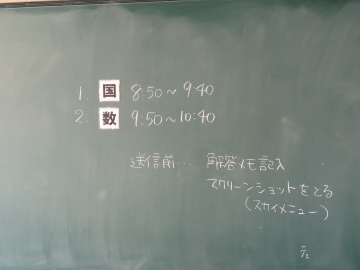 1. 国 8:50〜9:40
2. 数 9:50〜10:40
送信前… 解答メモ記入
スクリーンショットをとる
(スカイメニュー)